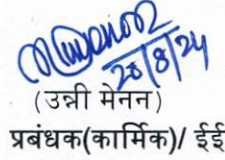 28/8/24
(उन्नी मेनन)
प्रबंधक(कार्मिक)/ ईई